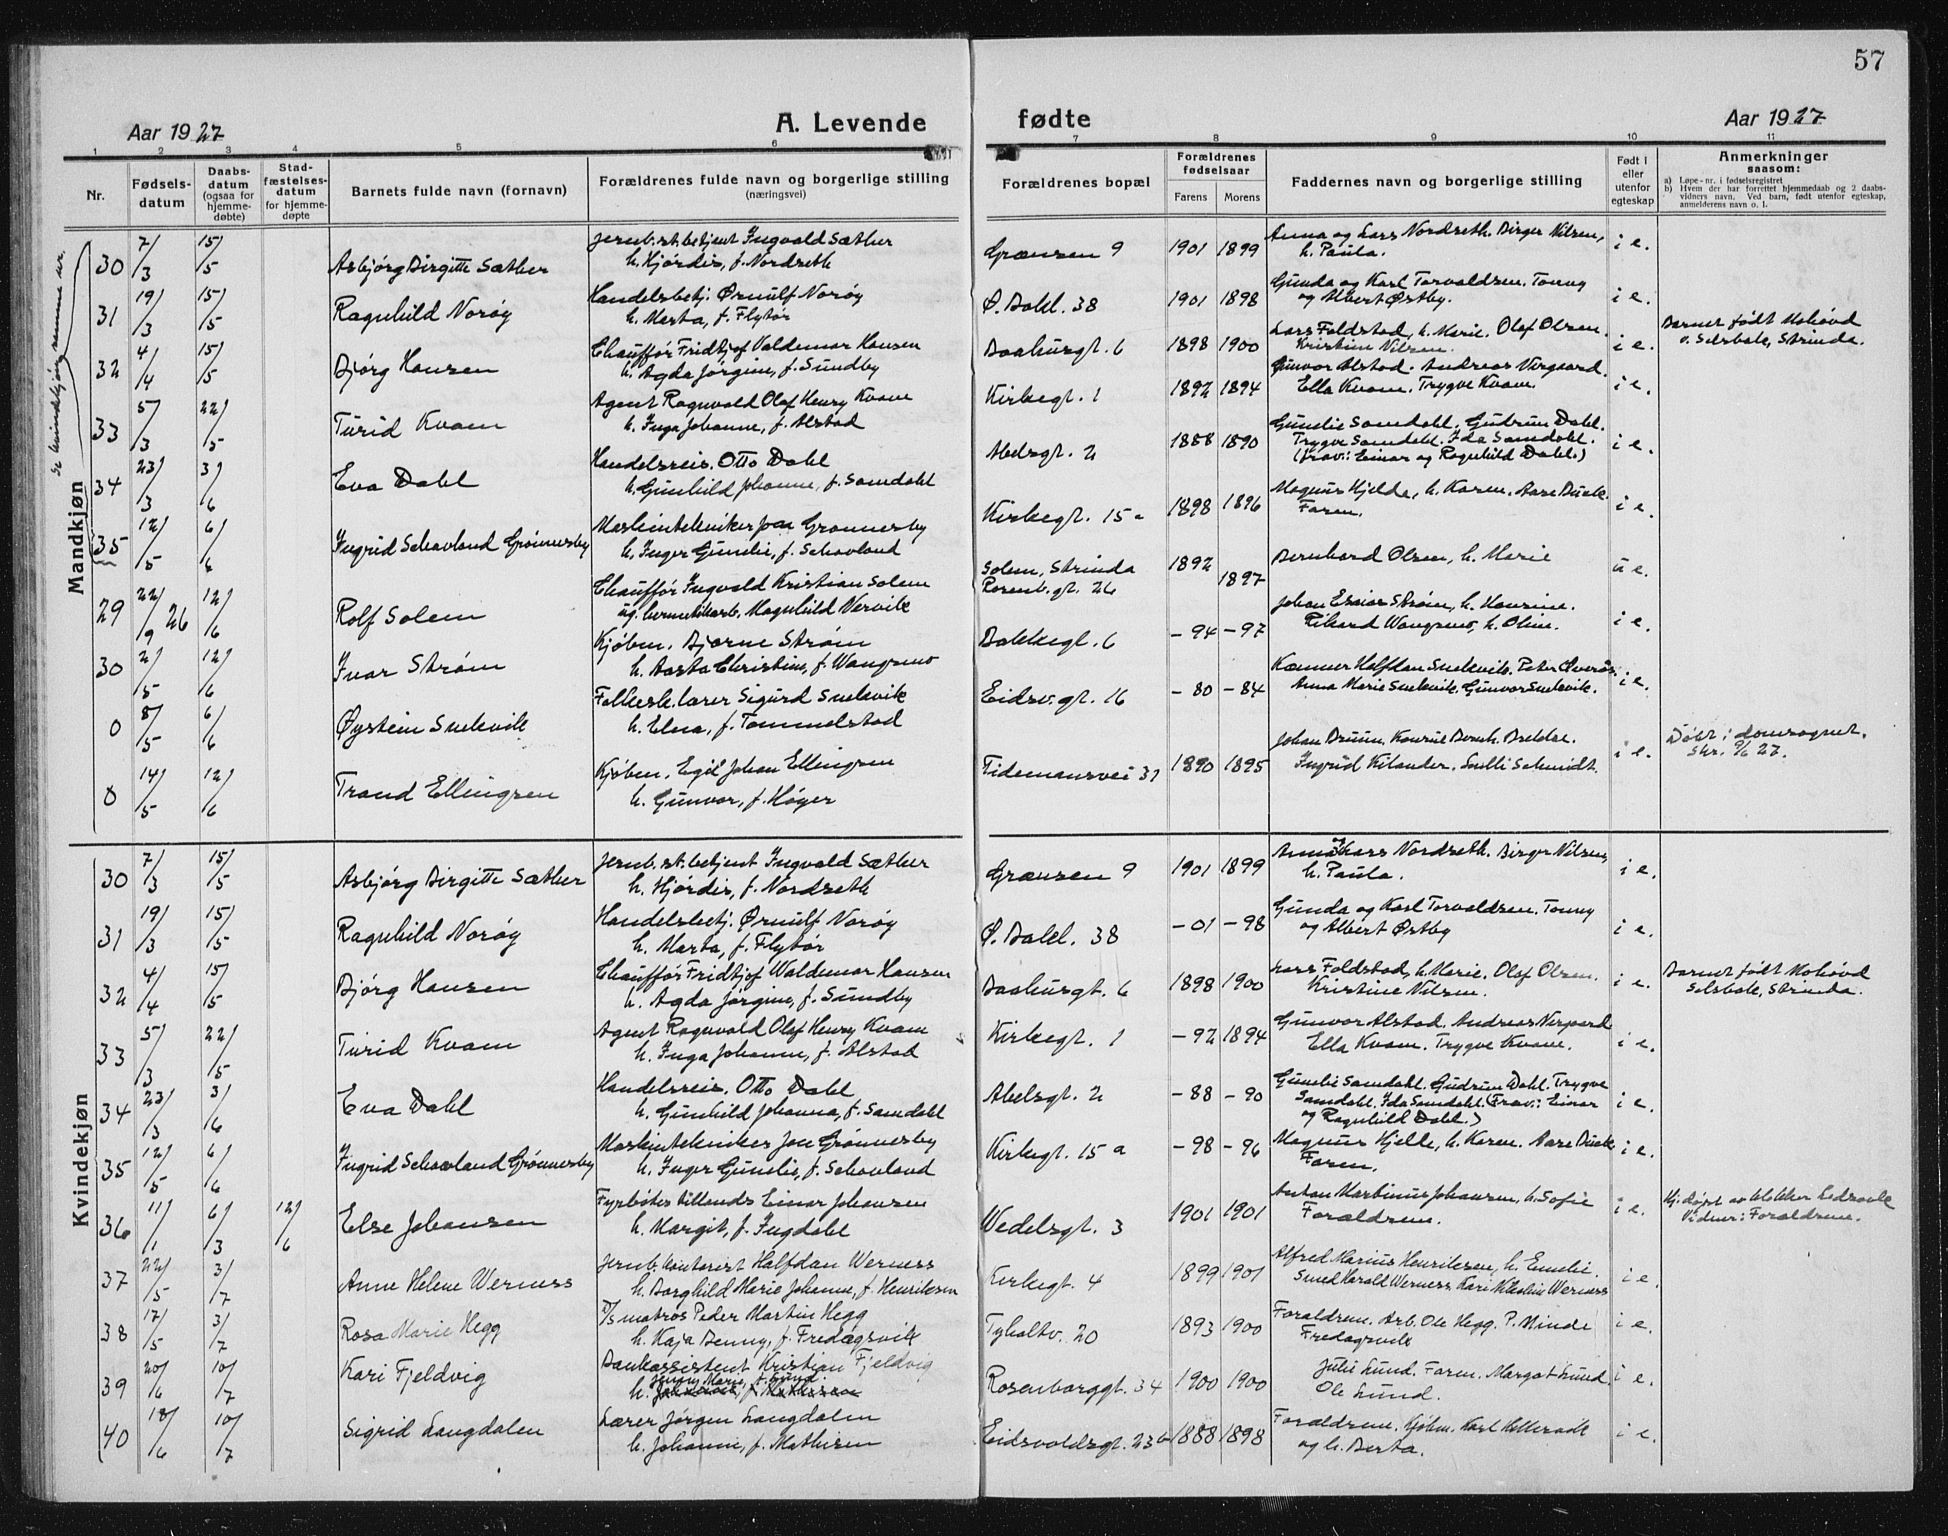 57
Aar 1927
A. Levende
fødte
Aar 1927
1 2 3 4 5 6 7 8 9 10 11
Nr.
Fødsels-datum
Daabs-datum (ogsaa for hjemme-døbte)
Stad-fæstelses-datum for hjemme-døpte
Barnets fulde navn (fornavn)
Forældrenes fulde navn og borgerlige stilling (næringsvei)
Forældrenes bopæl
Forældrenes fødselsaar
Farens Morens
Faddernes navn og borgerlig stilling
Født i eller utenfor egteskap
Anmerkninger saasom:
a) Løpe-nr. i fødselsregistret
b) Hvem der har forrettet hjemmedaab og 2 daabs-
vidners navn. Ved barn, født utenfor egteskap,
anmelderens navn o. l.
Mandkjøn
se kvindekjøn, samme nr.
30 7/3 15/5 Asbjörg Birgitte Sæther
Jernb. st. betjent Ingvald Sæther
h. Hjördis, f. Nordseth
Grænsen 9 1901 1899
Anna og Lars Nordseth. Birger Nilsen,
h. Paula.
i e.
31 19/3 15/5 Ragnhild Norøy
Handelsbetj. Ørnulf Norøy
h. Marta, f. Flytør
Ø. Bakl. 38 1901 1898
Gunda og Karl Torvaldsen. Tonny
og Albert Østby.
i e.
32 4/4 15/5 Bjørg Hansen
Chauffør Fridtjof Valdemar Hansen
h. Agda Jørgine, f. Sundby
Baahusgt. 6 1898 1900
Lars Foldstad, h. Marie. Olaf Olsen.
Kristine Nilsen.
i e.
Barnet født Moholtd
Selsbak, Strinda.
33 5/3 22/5 Turid Kvam
Agent Ragnvald Olaf Henry Kvam
h. Inga Johanne, f. Alstad
Kirkegt. 1 1892 1894
Gunvor Alstad. Andreas Vergaard.
Ella Kvam. Trygve Kvam.
i e.
34 23/3 3/6 Eva Dahl
Handelsreis. Otto Dahl
h. Gunhild Johanne, f. Samdahl
Abelsgt. 2 1888 1890
Gunelie Samdahl. Gudrun Dahl.
Trygve Samdahl. Ida Samdahl.
(Frav.: Einar og Ragnhild Dahl.)
i e.
35 12/5 6/6 Ingrid Schavland Grönnesby
Maskintekniker Jon Grønnesby
h. Inger Gunelie, f. Schavland
Kirkegt. 15 a 1898 1896
Magnus Hjelde, h. Karen. Aase Buck.
Faren.
i e.
29 22/9 26 12/6 Rolf Solem
Chauffør Ingvald Kristian Solem
ug. hermetikarb. Magnhild Vervik
Solem, Strinda
Rosenb.gt. 26 1892 1897
Bernhard Olsen, h. Marie
u e.
30 2/5 12/6 Ivar Strøm
Kjøbm. Bjarne Strøm
h. Aasta Christine, f. Wangsmo
Bakkegt. 6 - 94 - 97
Johan Esaias Strøm, h. Hansine.
Rikard Wangsmo, h. Oline.
i e.
0 8/5 6/6 Øystein Snekvik
Folkesk. lærer Sigurd Snekvik
h. Elna, f. Tommelstad
Eidsv.gt. 16 - 80 - 84
Kæmner Halfdan Snekvik. Peter Overås.
Anna Marie Snekvik. Gunvor Snekvik.
i e.
0 14/5 12/6 Trond Ellingsen
Kjøbm. Egil Johan Ellingsen
h. Gunvor, f. Høyer
Tidemansvei 31 1890 1895
Johan Bruun.
Ingrid Kilander. Snilli Schmidt.
i e.
Döbt i domsognet.
Skr. 9/6 27.
Kvindekjøn
30 7/3 15/5 Asbjörg Birgitte Sæther
Jernb. st. betjent Ingvald Sæther
h. Hjördis, f. Nordseth
Grænsen 9 1901 1899
Anna og Lars Nordseth. Birger Nilsen,
h. Paula.
i e.
31 19/3 15/5 Ragnhild Norøy
Handelsbetj. Ørnulf Norøy
h. Marta, f. Flytør
Ø. Bakl. 38 - 01 - 98
Gunda og Karl Torvaldsen. Tonny
og Albert Østby
i e.
32 4/4 15/5 Bjørg Hansen
Chauffør Fridtjof Waldemar Hansen
h. Agda Jørgine, f. Sundby
Baahusgt. 6 1898 1900
Lars Foldstad, h. Marie. Olaf Olsen.
Kristine Nilsen.
i e.
Barnet født Moholtd
Selsbak, Strinda.
33 5/3 22/5 Turid Kvam
Agent Ragnvald Olaf Henry Kvam
h. Inga Johanne, f. Alstad
Kirkegt. 1 - 92 1894
Gunvor Alstad. Andreas Vergaard
Ella Kvam. Trygve Kvam.
i e.
34 23/3 3/6 Eva Dahl
Handelsreis. Otto Dahl
h. Gunhild Johanna, f. Samdahl
Abelsgt. 2 - 88 - 90
Gunelie Samdahl. Gudrun Dahl. Trygve
Samdahl. Ida Samdahl. (Frav.: Einar
og Ragnhild Dahl.)
i e.
35 12/5 6/6 Ingrid Schavland Grönnesby
Maskintekniker Jon Grønnesby
h. Inger Gunelie, f. Schavland
Kirkegt. 15 a - 98 - 96
Magnus Hjelle, h. Karen. Aase Buck
Faren.
i e.
36 11/1 6/3 12/6 Else Johansen
Fyrbøter Einar Johansen
h. Margit, f. Ingdahl
Wedelsgt. 3 1901 1901
Anton Martinus Johansen, h. Sofie
Forældrene.
i e.
Hj. døpt av klokker
Vidner: Forældrene.
37 22/5 3/7 Anne Helene Werness
Jernb. kontorist Halfdan Werness
h. Borghild Marie Johanne, f. Henriksen
Kirkegt. 4 1899 1901
Alfred Marius Henriksen, h. Emelie.
Smed Harald Werness. Kari Werness
i e.
38 17/5 3/7 Rosa Marie Hegg
F/s matros Peder Martin Hegg
h. Kaja Benny, f. Fredagsvik
Tyholtv. 20 1893 1900
Forældrene. Arb. Ole Hegg. P. Minde
Fredagsvik
i e.
39 20/6 10/7 Kari Fjeldvig
Bankassistent Kristian Fjeldvig
Jenny Marie, f. Lund.
h. Johanne, f. Mathisen
Rosenborggt. 34 1900 1900
Julie Lund. Faren. Margot Lund
Ole Lund.
i e.
40 18/6 10/7 Sigrid Langdalen
Lærer Jørgen Langdalen
h. Johanne, f. Mathisen
Eidsvoldsgt. 23 b 1888 1898
Forældrene. Kjøbm. Karl
og h. Berta.
i e.